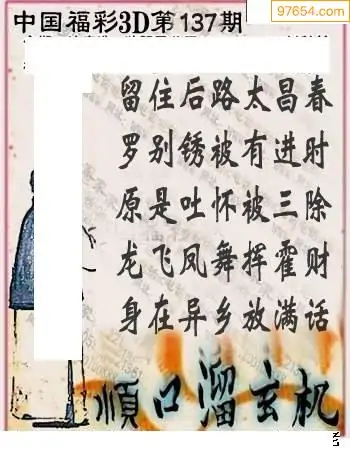 97654.com
中国福彩3D第137期
留住后路太昌春
罗别锈被有进时
原是吐怀被三除
龙飞凤舞挥霍财
身在异乡放满话
顺口溜玄机